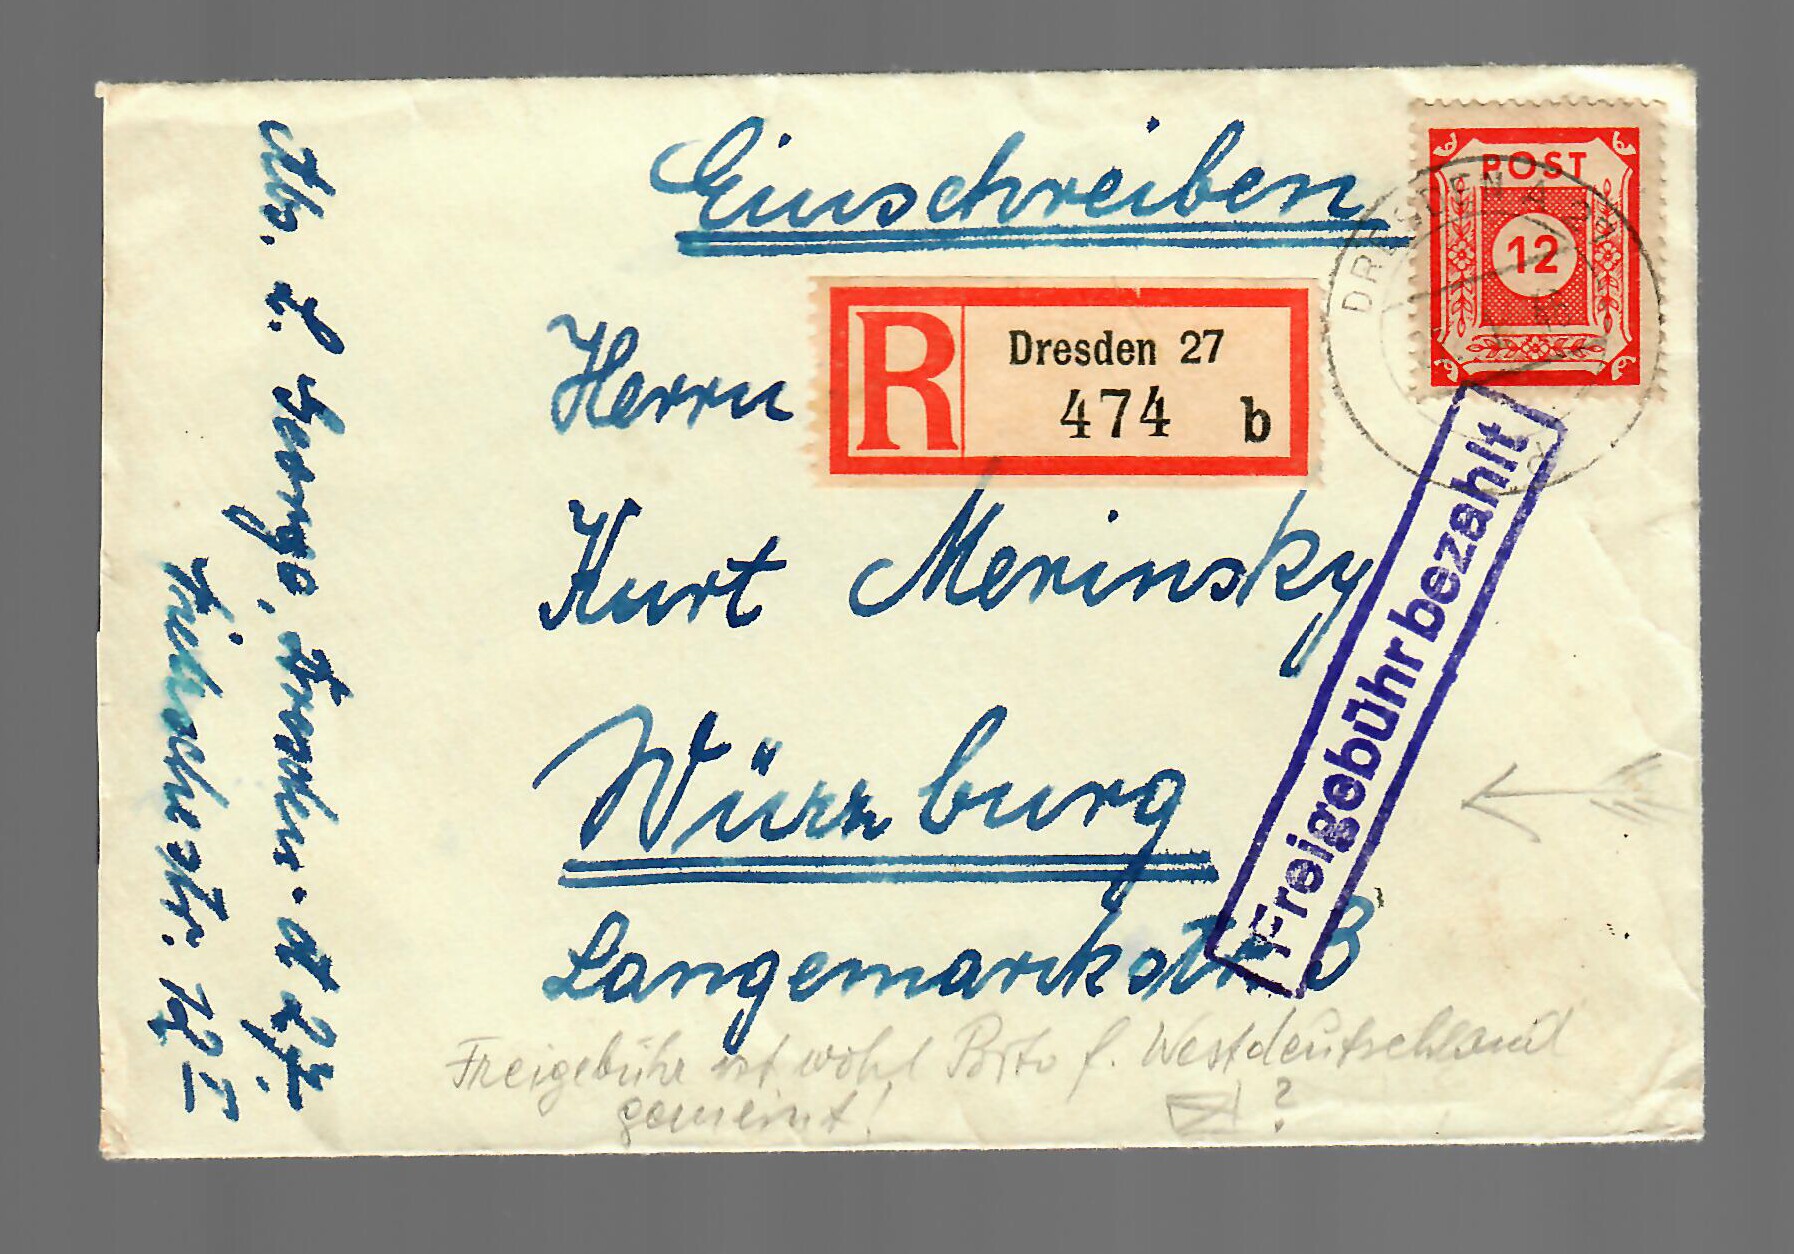 Einschreiben
POST
12
DRESDEN A 27
R
Dresden 27
474 b
Herrn
Kurt Merinsky
Würzburg
Langemarckstr. 3
Freigebühr bezahlt
Abs. L. George, Dresden-A 27.
str. 12 I
Freigebühr ist wohl Porto f. Westdeutschland
gemeint!
?